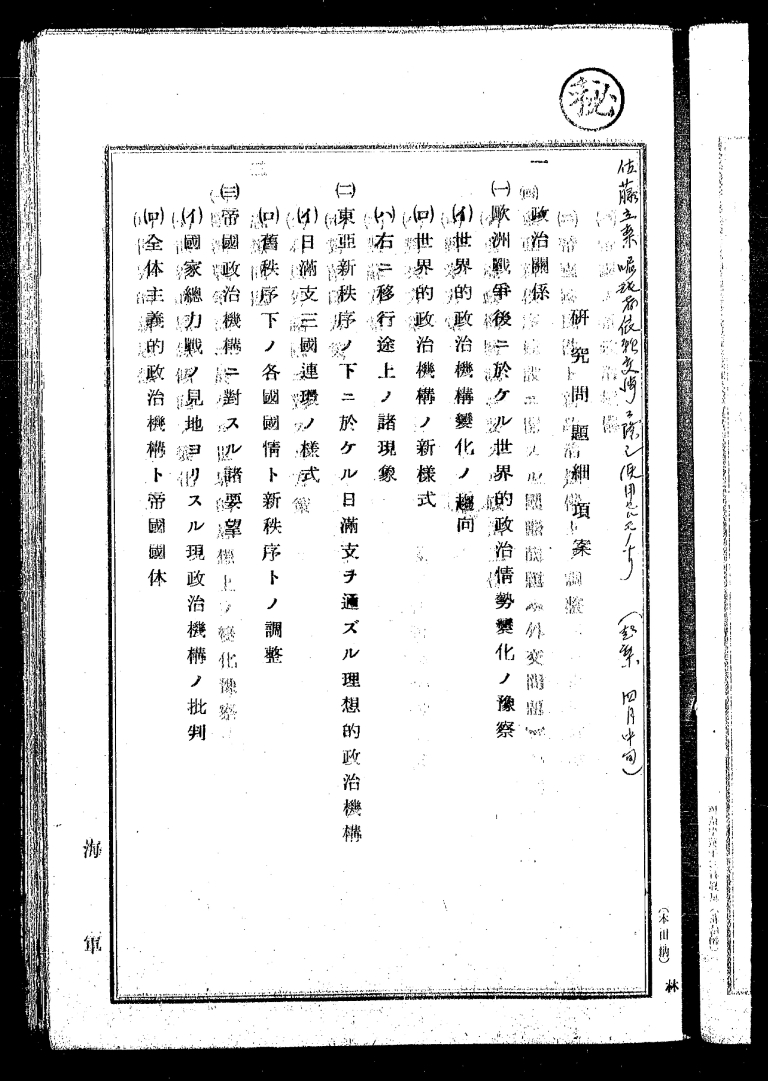 秘
佐藤立案
(起案 四月中旬)
研究問題細項案
一 政治關係
(一)歐洲戰爭後ニ於ケル世界的政治情勢變化ノ豫察
(イ)世界的政治機構變化ノ趨向
(ロ)世界的政治機構ノ新樣式
(ハ)右ニ移行途上ノ諸現象
(二)東亞新秩序ノ下ニ於ケル日滿支ヲ通ズル理想的政治機構
(イ)日滿支三國連環ノ樣式
(ロ)舊秩序下ノ各國國情ト新秩序トノ調整
(三)帝國政治機構ニ對スル諸要望
(イ)國家總力戰ノ見地ヨリスル現政治機構ノ批判
(ロ)全体主義的政治機構ト帝國國体
海軍
(本田納)
林